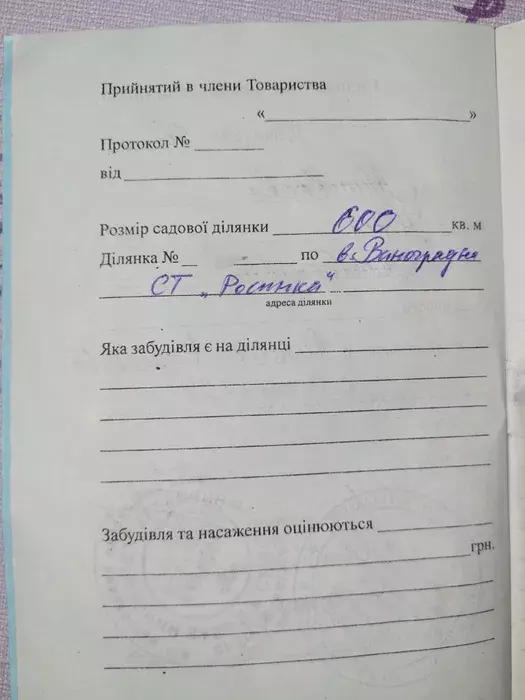 Прийнятий в члени Товариства
«____________________»
Протокол № ________
від ________________
Розмір садової ділянки 600 кв. м
Ділянка № __ ________ по в. Виноградна
СТ „Росинка"
адреса ділянки
Яка забудівля є на ділянці ____________________
Забудівля та насаження оцінюються ____________
____________________ грн.